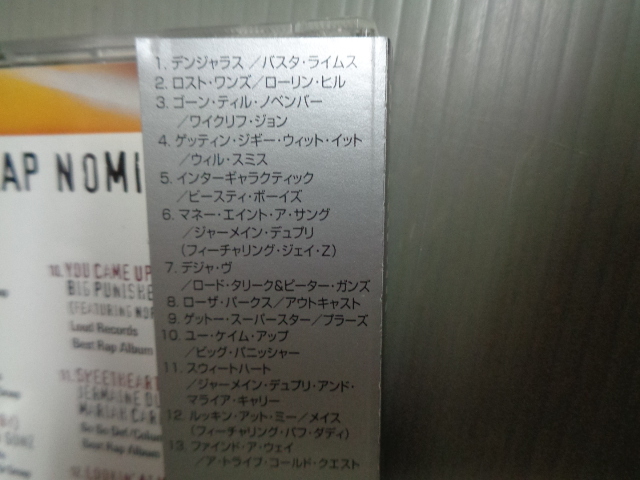 1. デンジャラス／バスタ・ライムス
2. ロスト・ワンズ／ローリン・ヒル
3. ゴーン・ティル・ノベンバー
／ワイクリフ・ジョン
4. ゲッティン・ジギー・ウィット・イット
／ウィル・スミス
5. インターギャラクティック
／ビースティ・ボーイズ
6. マネー・エイント・ア・サング
／ジャーメイン・デュプリ
（フィーチャリング・ジェイ・Z）
7. デジャ・ヴ
／ロード・タリーク&ピーター・ガンズ
8. ローザ・パークス／アウトキャスト
9. ゲットー・スーパースター／プラーズ
10. ユー・ケイム・アップ
／ビッグ・パニッシャー
11. スウィートハート
／ジャーメイン・デュプリ・アンド・
マライア・キャリー
12. ルッキン・アット・ミー／メイス
（フィーチャリング・パフ・ダディ）
13. ファインド・ア・ウェイ
／ア・トライブ・コールド・クエスト
AP NOMI
10. YOU CAME UP
BIG PUNISHE
(FEATURING NOR
Loud Records
Best Rap Album
11. SWEETHEART
JERMAINE DU
MARIAH CAR
So So Def/Colum
Best Rap Album